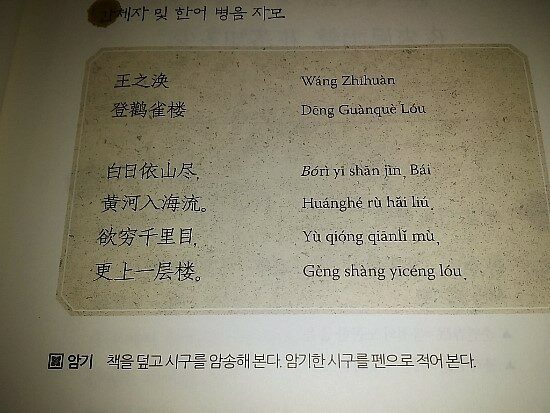 간체자 및 한어 병음 자모
王之涣 Wáng Zhīhuàn
登鹳雀楼 Dēng Guànquè Lóu
白日依山尽, Bórì yī shān jìn, Bái
黄河入海流。 Huánghé rù hǎi liú.
欲穷千里目, Yù qióng qiānlǐ mù,
更上一层楼。 Gèng shàng yīcéng lóu.
암기 책을 덮고 시구를 암송해 본다. 암기한 시구를 펜으로 적어 본다.